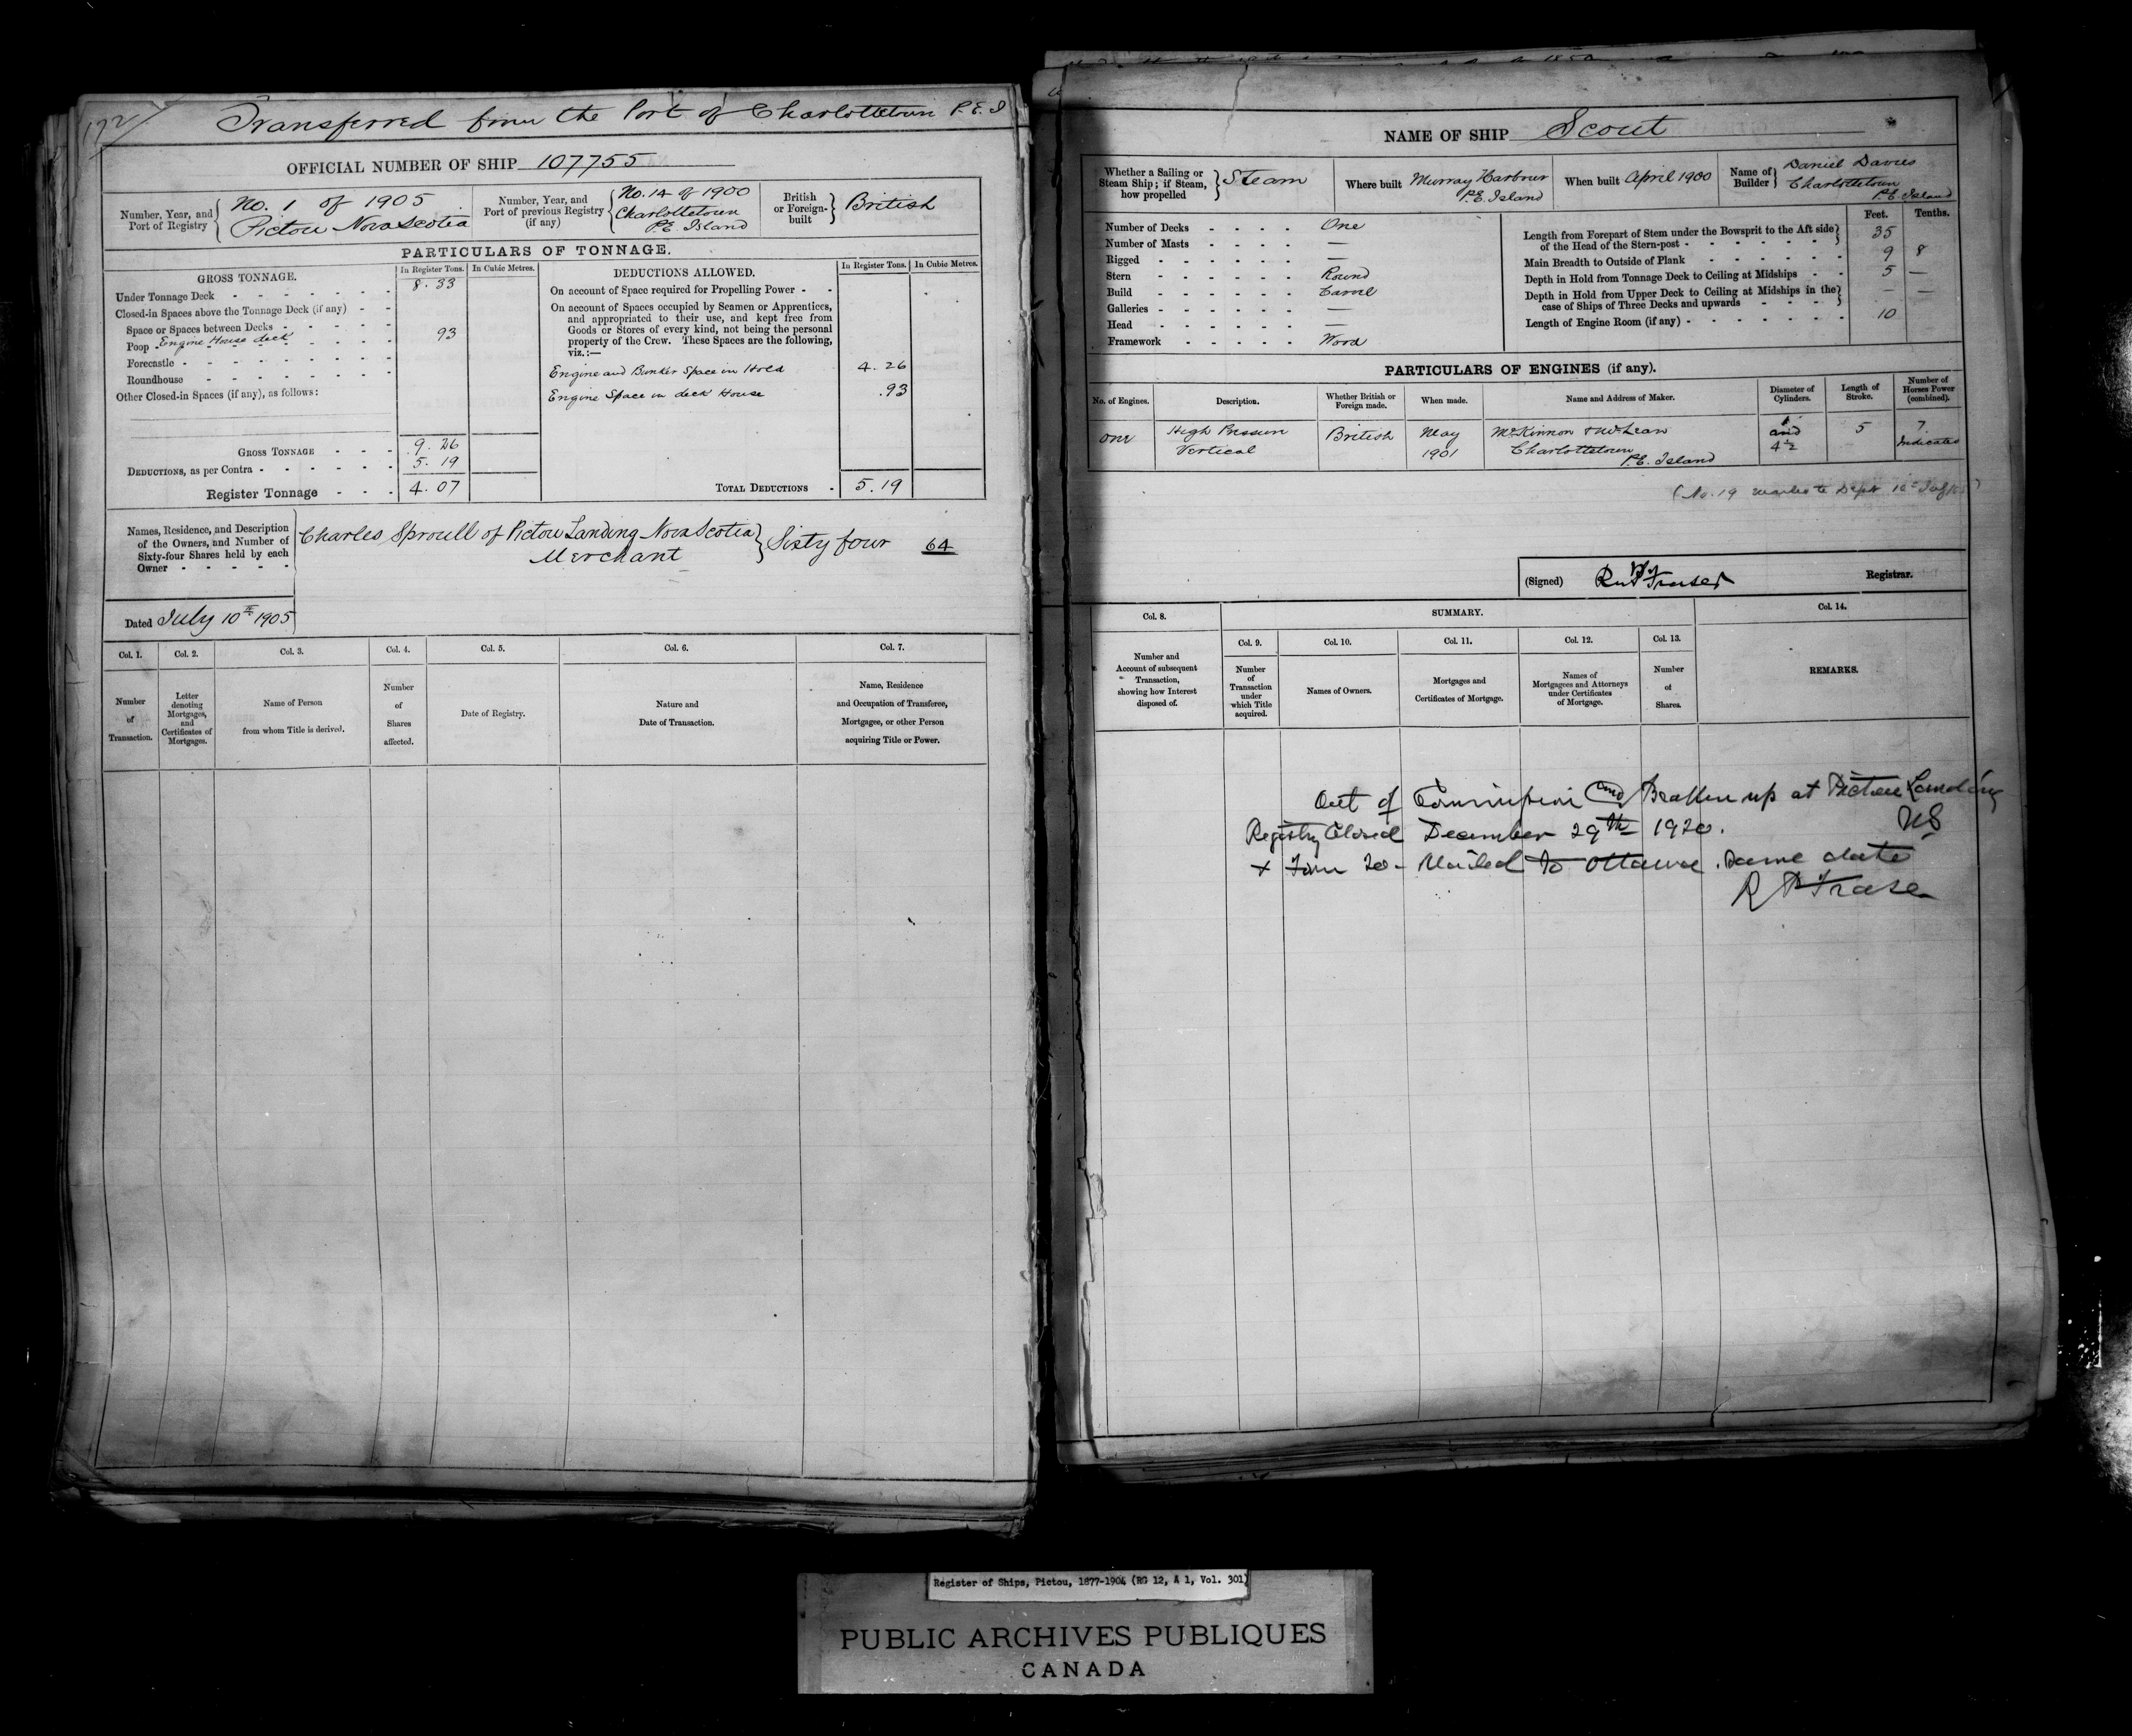 172
Transferred from the Port of Charlottetown P.E.I
OFFICIAL NUMBER OF SHIP 107755
Number, Year, and Port of Registry
No. 1 of 1905
Pictou Nova Scotia
Number, Year, and Port of previous Registry (if any)
No. 14 of 1900
Charlottetown
P.E. Island
British or Foreign-built
British
PARTICULARS OF TONNAGE.
GROSS TONNAGE.
In Register Tons.
In Cubic Metres.
Under Tonnage Deck 8.33
Closed-in Spaces above the Tonnage Deck (if any)
Space or Spaces between Decks
Poop Engine House deck 93
Forecastle
Roundhouse
Other Closed-in Spaces (if any), as follows:
GROSS TONNAGE 9.26
DEDUCTIONS, as per Contra 5.19
Register Tonnage 4.07
DEDUCTIONS ALLOWED.
In Register Tons.
In Cubic Metres.
On account of Space required for Propelling Power
On account of Spaces occupied by Seamen or Apprentices,
and appropriated to their use, and kept free from
Goods or Stores of every kind, not being the personal
property of the Crew. These Spaces are the following,
viz.:—
Engine and Bunker Space in Hold 4.26
Engine Space in deck House .93
TOTAL DEDUCTIONS 5.19
Names, Residence, and Description
of the Owners, and Number of
Sixty-four Shares held by each
Owner
Charles Sproull of Pictou Landing Nova Scotia
Merchant
Sixty four 64
Dated July 10th 1905
Col. 1.
Number of Transaction.
Col. 2.
Letter denoting Mortgages, and Certificates of Mortgages.
Col. 3.
Name of Person from whom Title is derived.
Col. 4.
Number of Shares affected.
Col. 5.
Date of Registry.
Col. 6.
Nature and Date of Transaction.
Col. 7.
Name, Residence and Occupation of Transferee, Mortgagee, or other Person acquiring Title or Power.
NAME OF SHIP Scout
Whether a Sailing or Steam Ship; if Steam, how propelled
Steam
Where built Murray Harbour
P.E. Island
When built April 1900
Name of Builder
Daniel Davies
Charlottetown
P.E. Island
Number of Decks One
Number of Masts —
Rigged —
Stern Round
Build Carvel
Galleries —
Head —
Framework Wood
Feet. Tenths.
Length from Forepart of Stem under the Bowsprit to the Aft side
of the Head of the Stern-post 35
Main Breadth to Outside of Plank 9 8
Depth in Hold from Tonnage Deck to Ceiling at Midships 5 —
Depth in Hold from Upper Deck to Ceiling at Midships in the
case of Ships of Three Decks and upwards — —
Length of Engine Room (if any) 10
PARTICULARS OF ENGINES (if any).
No. of Engines.
Description.
Whether British or Foreign made.
When made.
Name and Address of Maker.
Diameter of Cylinders.
Length of Stroke.
Number of Horses Power (combined).
One
High Pressure
Vertical
British
May
1901
McKinnon & McLean
Charlottetown
P.E. Island
and
4½
5
7
Indicated
(No. 19 mailed to Dept
(Signed) Fraser Registrar.
Col. 8.
Number and Account of subsequent Transaction, showing how Interest disposed of.
SUMMARY.
Col. 9.
Number of Transaction under which Title acquired.
Col. 10.
Names of Owners.
Col. 11.
Mortgages and Certificates of Mortgage.
Col. 12.
Names of Mortgagees and Attorneys under Certificates of Mortgage.
Col. 13.
Number of Shares.
Col. 14.
REMARKS.
Out of Commission and Broken up at Pictou Landing
NS
Registry Closed December 29th 1920.
+ Form 20 - Mailed to Ottawa. Same date
Fraser
Register of Ships, Pictou, 1877-1904 (RG 12, A 1, Vol. 301)
PUBLIC ARCHIVES PUBLIQUES
CANADA